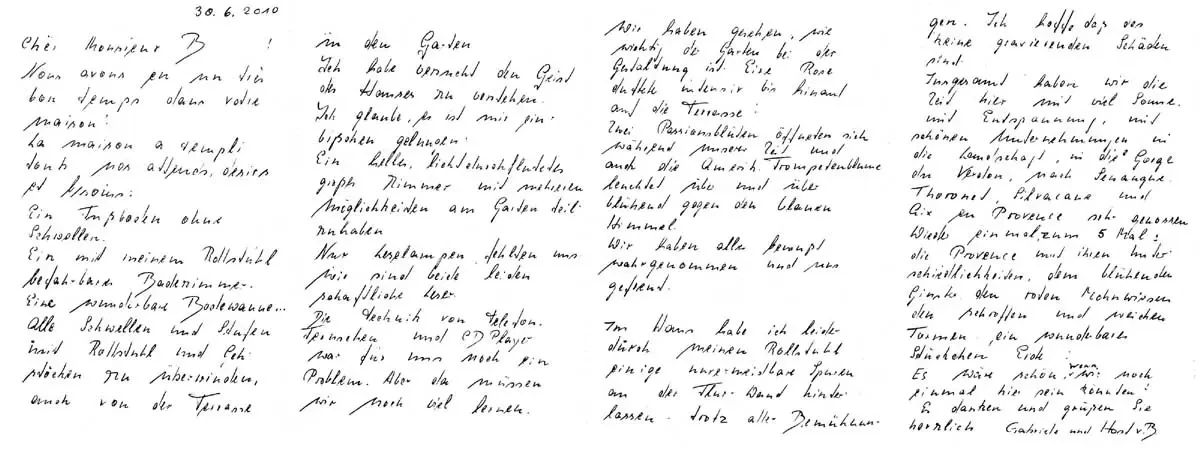 30.6.2010
Cher Monsieur B !
Nous avons eu un très
bon temps dans votre
maison!
La maison a rempli
touts nos attends, désirs
et besoins:
Ein Fußboden ohne
Schwellen.
Ein mit meinem Rollstuhl
befahrbares Badezimmer.
Eine wunderbare Badewanne...
Alle Schwellen und Stufen
mit Rollstuhl und Geh-
stöcken zu überwinden,
auch von der Terrasse
in den Garten
Ich habe versucht den Geist
des Hauses zu verstehen.
Ich glaube, es ist mir ein
bißchen gelungen:
Ein helles, lichtdurchflutetes
großes Zimmer mit mehreren
Möglichkeiten am Garten teil-
zuhaben
Nur Leselampen fehlten uns
wir sind beide leiden
schaftliche Leser.
Die Technik von Telefon.
Fernsehen und CD Player
war für uns noch ein
Problem. Aber da müssen
wir noch viel lernen.
Wir haben gesehen, wie
wichtig der Garten bei der
Gestaltung ist: Eine Rose
duftete intensiv bis hinauf
auf die Terrasse!
Zwei Passionsblüten öffneten sich
während unserer Zeit und
auch die Amerik. Trompetenblume
leuchtet über und über
blühend gegen den blauen
Himmel.
Wir haben alles bewußt
wahrgenommen und uns
gefreut.
Im Haus habe ich leider
durch meinen Rollstuhl
einige unvermeidbare Spuren
an der Flur-Wand hinter
lassen - trotz aller Bemühun-
gen. Ich hoffe daß es
keine gravierenden Schäden
sind.
Insgesamt haben wir die
Zeit hier mit viel Sonne.
mit Entspannung, mit
schönen Unternehmungen in
die Landschaft, in die Gorge
du Verdon, nach Senanque.
Thoronet, Silvacane und
Aix en Provence sehr genossen
Wieder einmal, zum 5 Mal:
die Provence mit ihren Unter
schiedlichkeiten, dem blühenden
Ginster, den roten Mohnwiesen
den schroffen und weichen
Formen, ein wunderbares
Stückchen Erde!
Es wäre schön, wenn wir noch
einmal hier sein könnten!
Es danken und grüßen Sie
herzlich Gabriele und Horst v. B